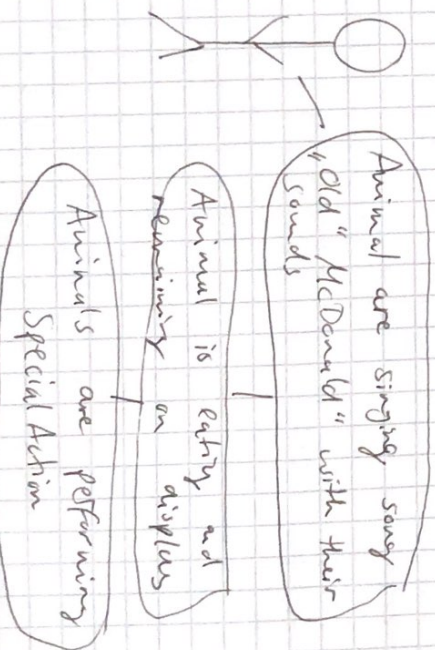 Animal are singing song
„Old" McDonald" with their
sounds
Animal is eating and
remaining on display
Animals are performing
Special Action